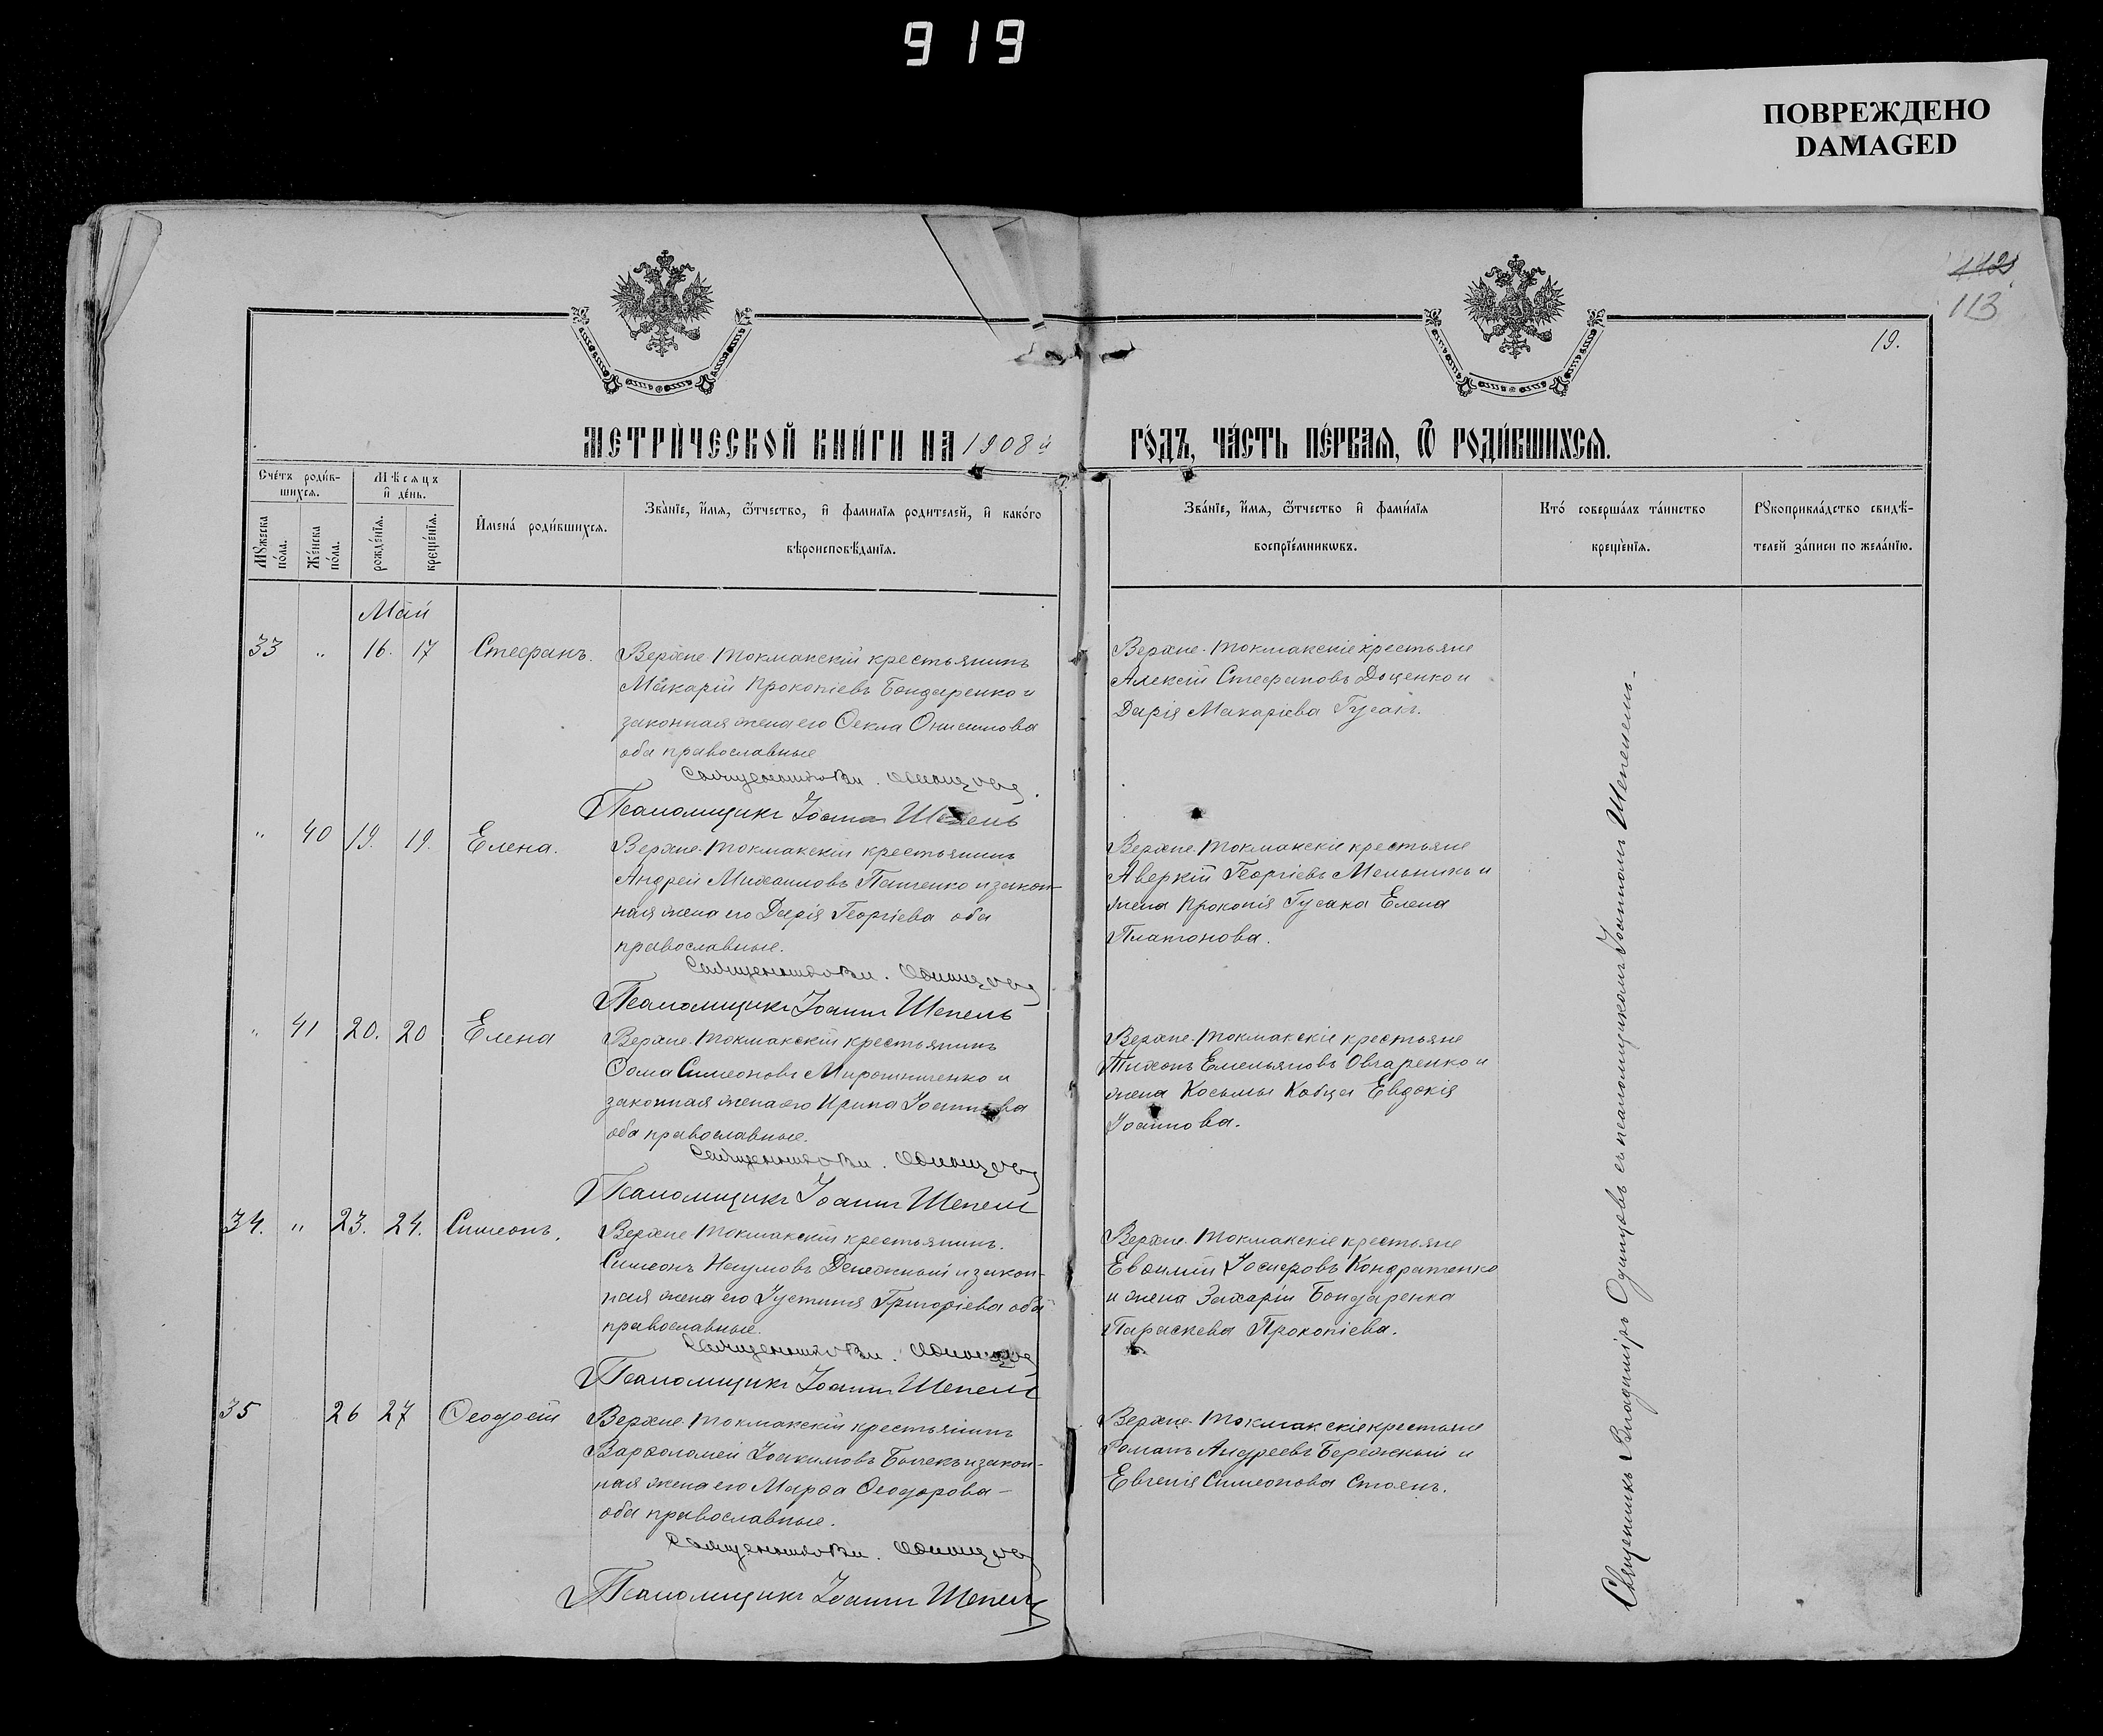 919
ПОВРЕЖДЕНО
DAMAGED
112
113
19.
МЕТРИ́ЧЕСКОЙ КНИ́ГИ НА 1908 й
ГО́ДЪ, ЧА́СТЬ ПЕ́РВАЯ, Ѿ РОДИ́ВШИХСЯ.
Сче́тъ роди́в-
шихся.
Мѣсяцъ
и҆ де́нь.
Мꙋжеска
по́ла.
Же́нска
по́ла.
рожде́нїя.
креще́нїя.
И҆мена́ роди́вшихся.
Зва́нїе, и҆́мя, ѻ҆́тчество, и҆ фами́лїя родителей, и҆ како́го
вѣроисповѣ́данїя.
Зва́нїе, и҆́мя, ѻ҆́тчество и҆ фами́лїя
воспрїе́мникѡвъ.
Кто́ соверша́лъ та́инство
креще́нїя.
Рꙋкоприкла́дство свидѣ́-
телей за́писи по жела́нїю.
Май
33 " 16. 17 Стефанъ.
Верхне-Токмакскій крестьянинъ
Макарій Прокопіевъ Бондаренко и
законная жена его Ѳекла Онисимова
оба православные
Священникъ Вл. Одинцовъ.
Псаломщикъ Іоаннъ Шепель
Верхне-Токмакскіе крестьяне
Алексій Стефановъ Доценко и
Дарія Макаріева Гусакъ.
" 40 19. 19. Елена.
Верхне-Токмакскій крестьянинъ
Андрей Михаиловъ Пащенко и закон-
ная жена его Дарія Георгіева оба
православные.
Священникъ Вл. Одинцовъ
Псаломщикъ Іоаннъ Шепель
Верхне-Токмакскіе крестьяне
Аверкій Георгіевъ Мельникъ и
жена Прокопія Гусака Елена
Платонова.
" 41 20. 20 Елена
Верхне-Токмакскій крестьянинъ
Ѳома Симеоновъ Мирошниченко и
законная жена его Ирина Іоаннова
оба православные.
Священникъ Вл. Одинцовъ
Псаломщикъ Іоаннъ Шепель
Верхне-Токмакскіе крестьяне
Тихонъ Емельяновъ Овчаренко и
жена Косьмы Кобца Евдокія
Іоаннова.
34. " 23. 24. Симеонъ.
Верхне-Токмакскій крестьянинъ.
Симеонъ Наумовъ Денежный и закон-
ная жена его Іустина Григоріева оба
православные.
Священникъ Вл. Одинцовъ
Псаломщикъ Іоаннъ Шепель
Верхне-Токмакскіе крестьяне
Евѳимій Іосифовъ Кондратенко
и жена Захарія Бондаренка
Параскева Прокопіева.
35 26 27 Ѳеодосій
Верхне-Токмакскій крестьянинъ
Варѳоломей Іоакимовъ и закон-
ная жена его Марѳа Ѳеодорова -
оба православные.
Священникъ Вл. Одинцовъ
Псаломщикъ Іоаннъ Шепель
Верхне-Токмакскіе крестьяне
Романъ Андреевъ Бережный и
Евгенія Симеонова Стоянъ.
Священникъ Владиміръ Одинцовъ съ псаломщикомъ Іоанномъ Шепелемъ.